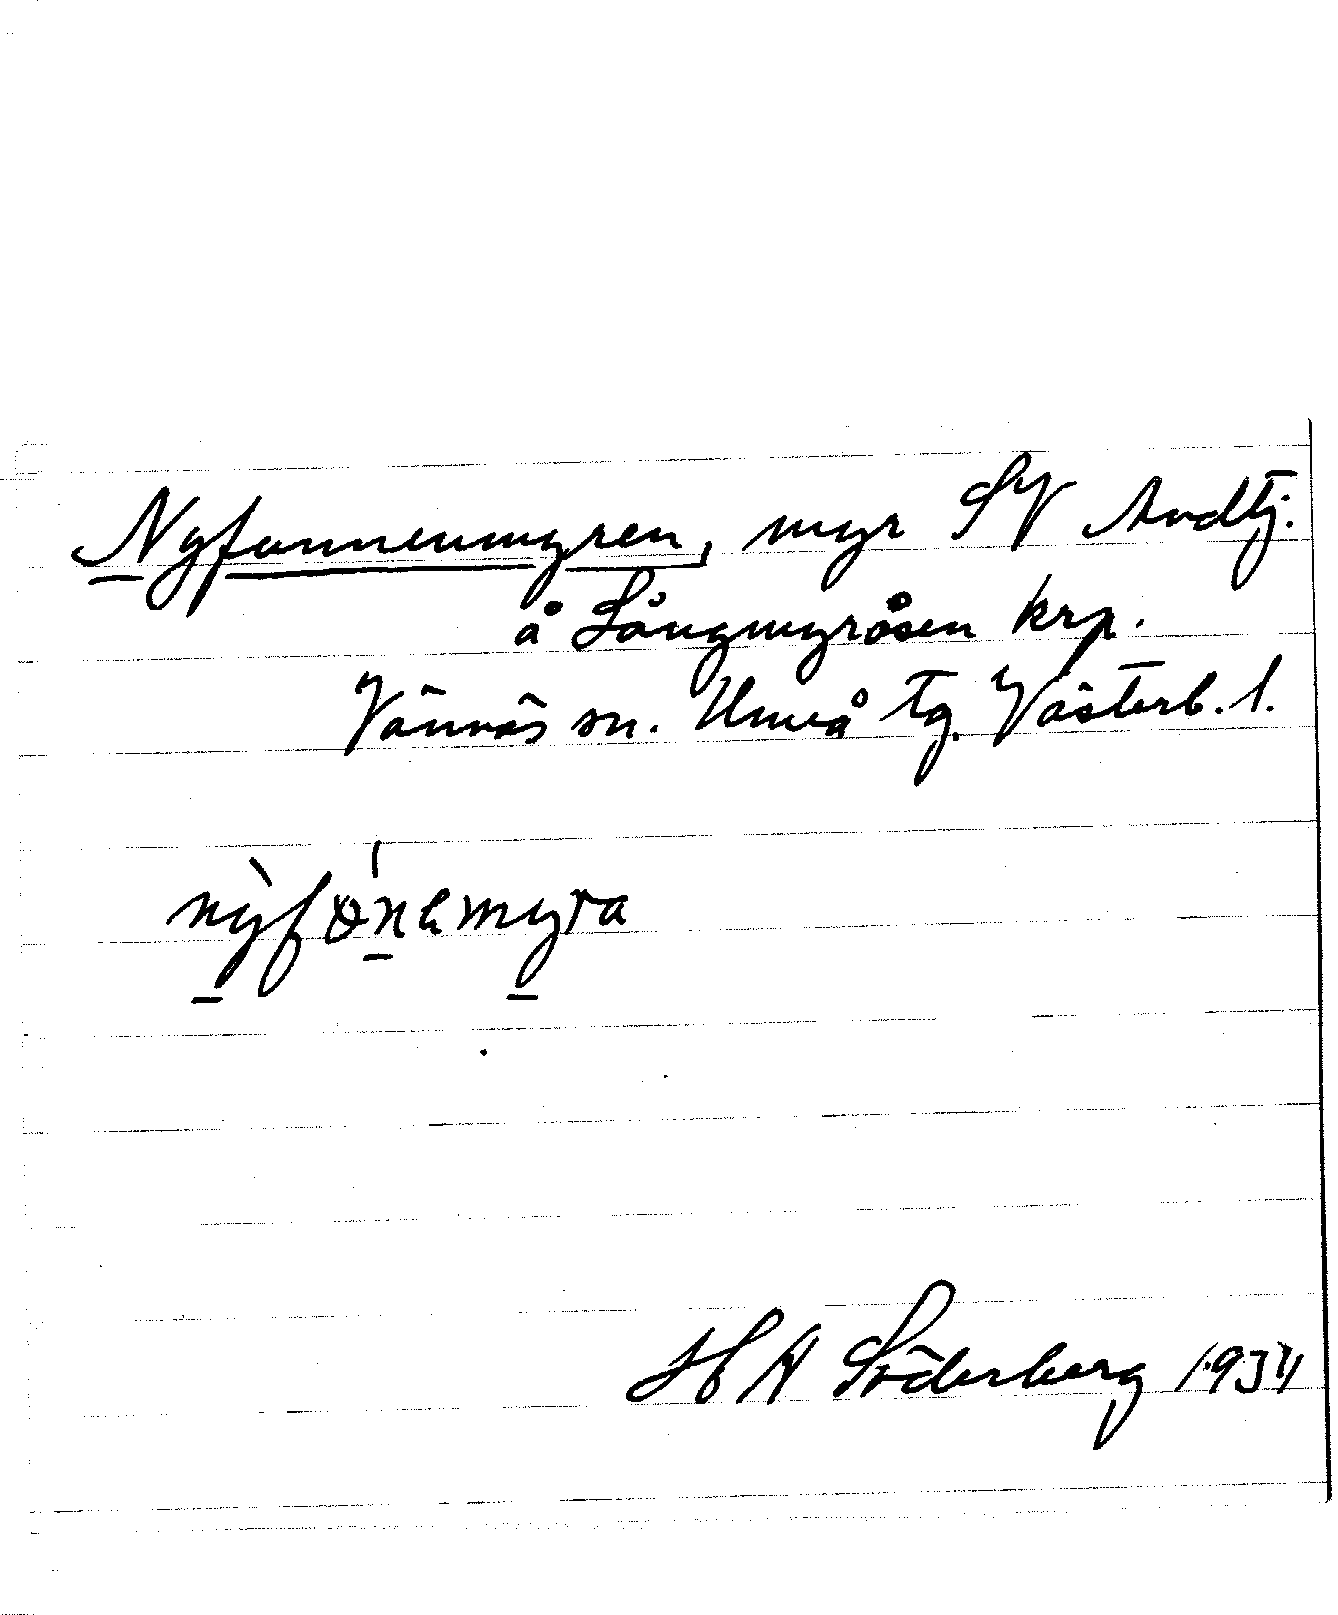 Nyfunnenmyren, myr SV Andtj.
å Långmyråsen krp.
Vännäs sn. Umeå tg. Västerb. l.
H A Söderberg 1934